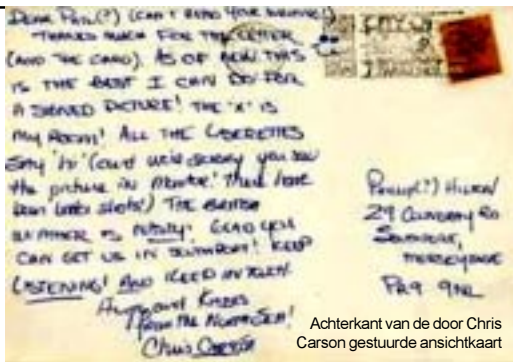 Dear Phil(?) (can't read your writing!)
Thanks much for the letter
(and the card). As of now this
is the best I can do for
a signed picture! The 'x' is
my room! All the
say 'hi' (and we're sorry you saw
the picture in There have
been better shots!) The British
weather is Glad you
can get us in Southport! Keep
listening! And keep in touch
and Kisses
from the North Sea!
Chris Carson
Philip(?)
29 Rd
Southport,
Merseyside
PR9 9NL
Achterkant van de door Chris
Carson gestuurde ansichtkaart